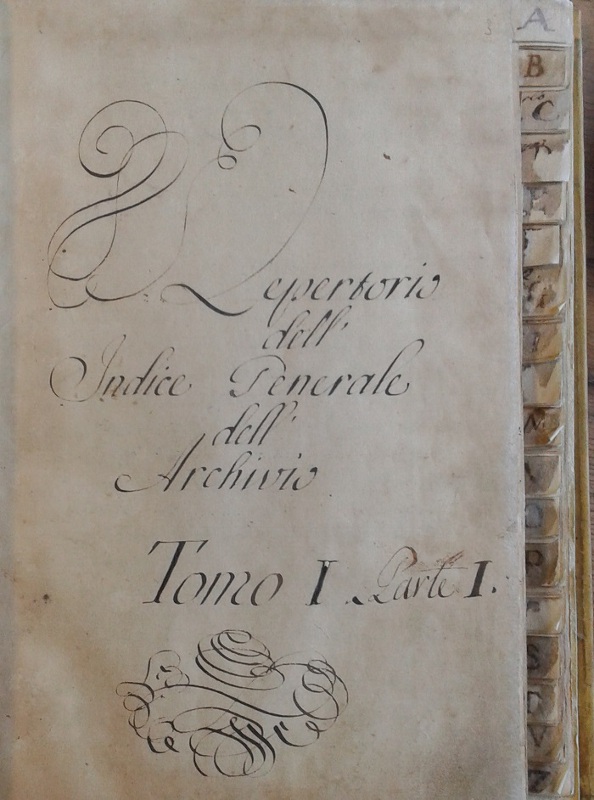 Repertorio
dell'
Indice Generale
dell'
Archivio
Tomo I Parte I.
A
B
C
I
N
P
S
T
V
Z